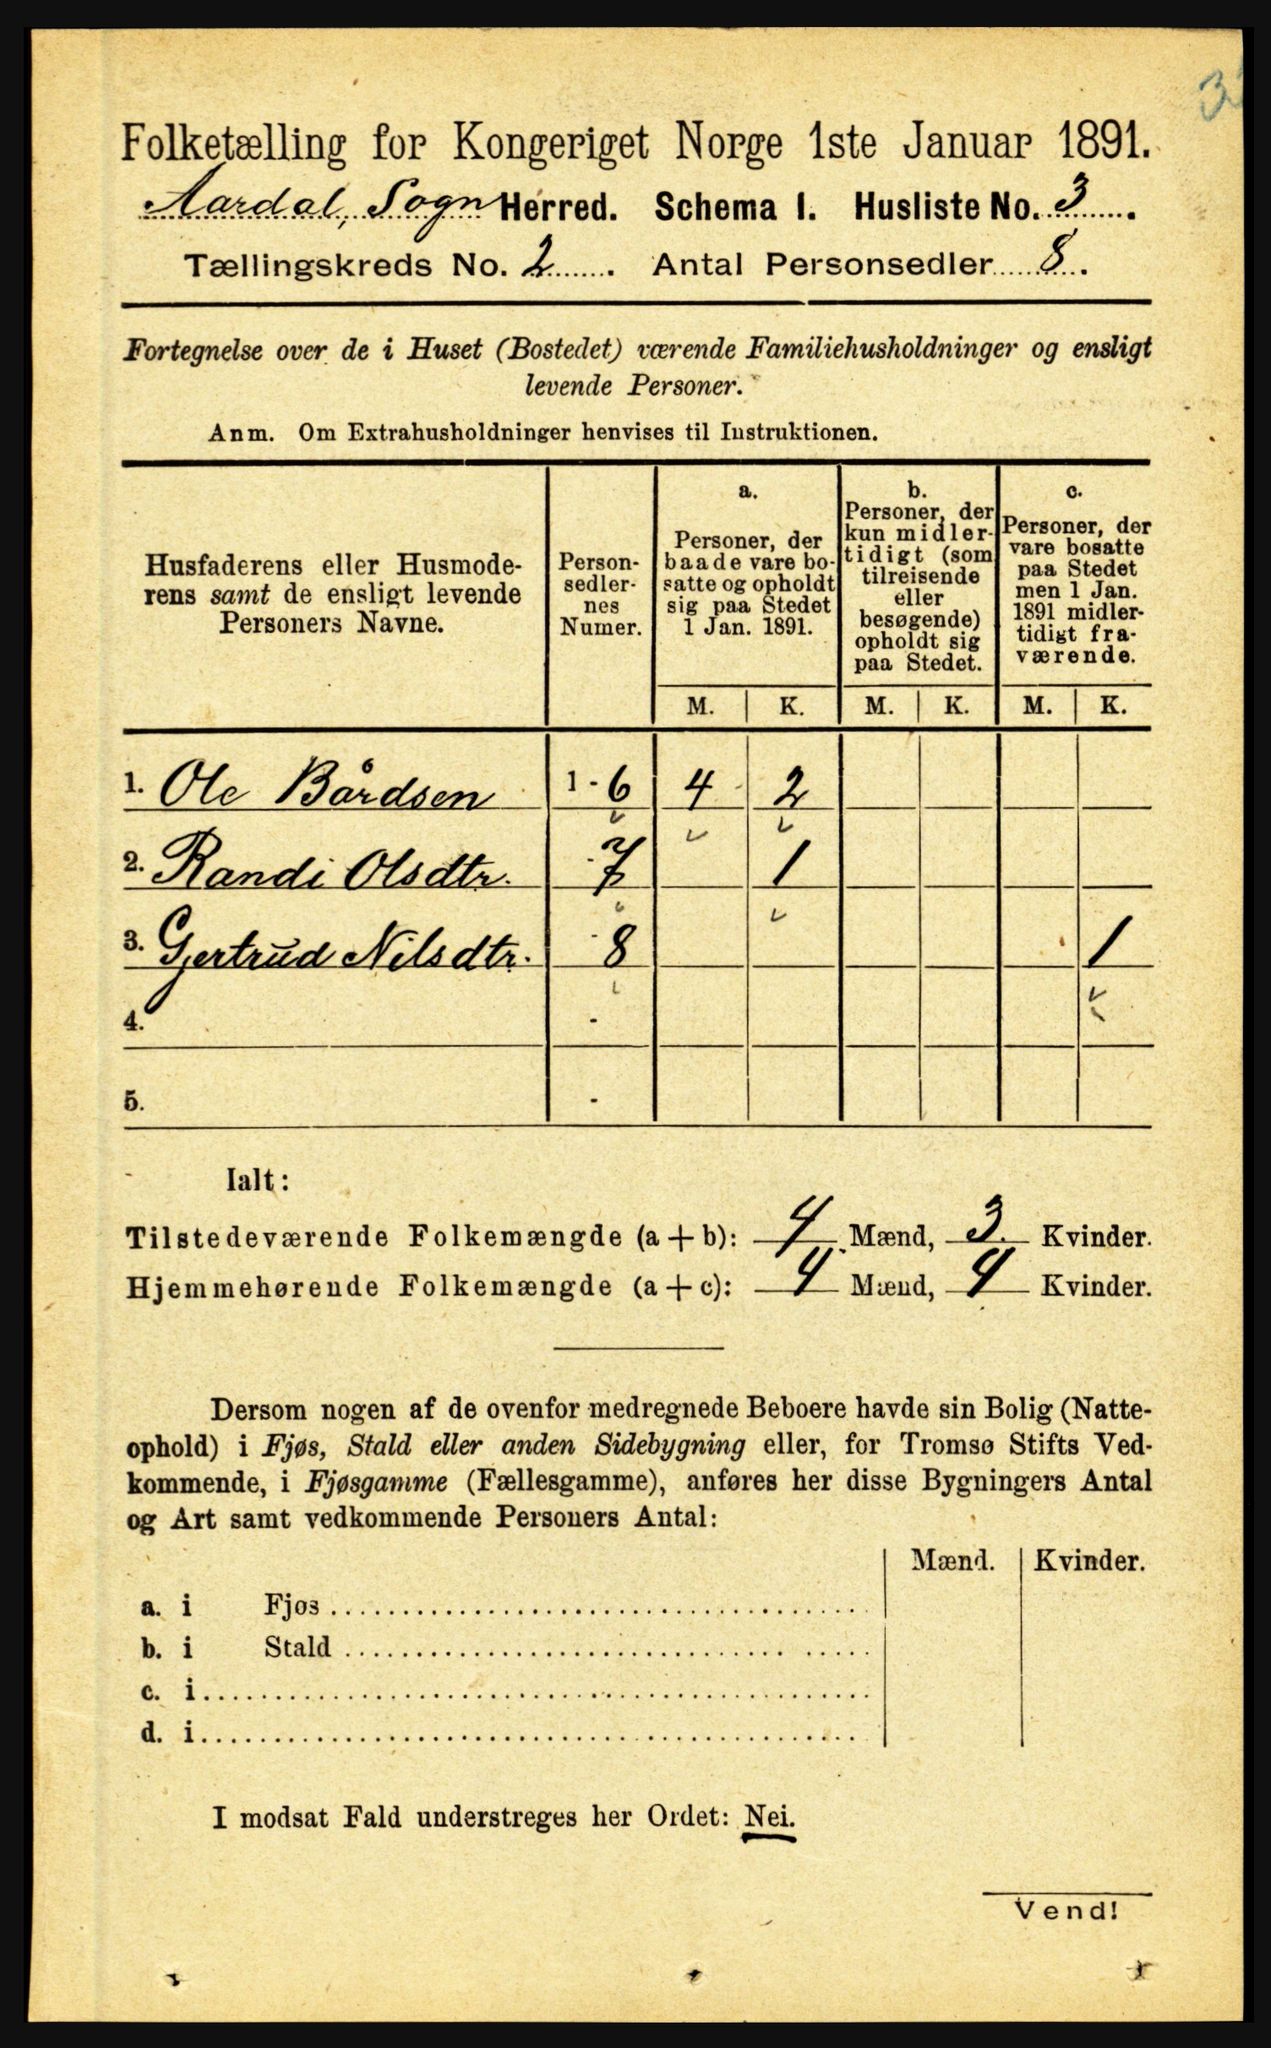 Folketælling for Kongeriget Norge 1ste Januar 1891.
Aardal, Sogn Herred. Schema I. Husliste No. 3.
Tællingskreds No. 2. Antal Personsedler 8.
Fortegnelse over de i Huset (Bostedet) værende Familiehusholdninger og ensligt
levende Personer.
Anm. Om Extrahusholdninger henvises til Instruktionen.
Husfaderens eller Husmode-
rens samt de ensligt levende
Personers Navne.
Person-
sedler-
nes
Numer.
a.
Personer, der
baade vare bo-
satte og opholdt
sig paa Stedet
1 Jan. 1891.
b.
Personer, der
kun midler-
tidigt (som
tilreisende
eller
besøgende)
opholdt sig
paa Stedet.
c.
Personer, der
vare bosatte
paa Stedet
men 1 Jan.
1891 midler-
tidigt fra-
værende.
M. K. M. K. M. K.
1. Ole Bårdsen 1 - 6 4 2
2. Randi Olsdtr. - 7 1
3. Gjertrud Nilsdtr. - 8 1
4. -
5. -
Ialt:
Tilstedeværende Folkemængde (a + b): 4 Mænd, 3 Kvinder.
Hjemmehørende Folkemængde (a + c): 4 Mænd, 4 Kvinder.
Dersom nogen af de ovenfor medregnede Beboere havde sin Bolig (Natte-
ophold) i Fjøs, Stald eller anden Sidebygning eller, for Tromsø Stifts Ved-
kommende, i Fjøsgamme (Fællesgamme), anføres her disse Bygningers Antal
og Art samt vedkommende Personers Antal:
Mænd. Kvinder.
a. i Fjøs
b. i Stald
c. i
d. i
I modsat Fald understreges her Ordet: Nei.
Vend!